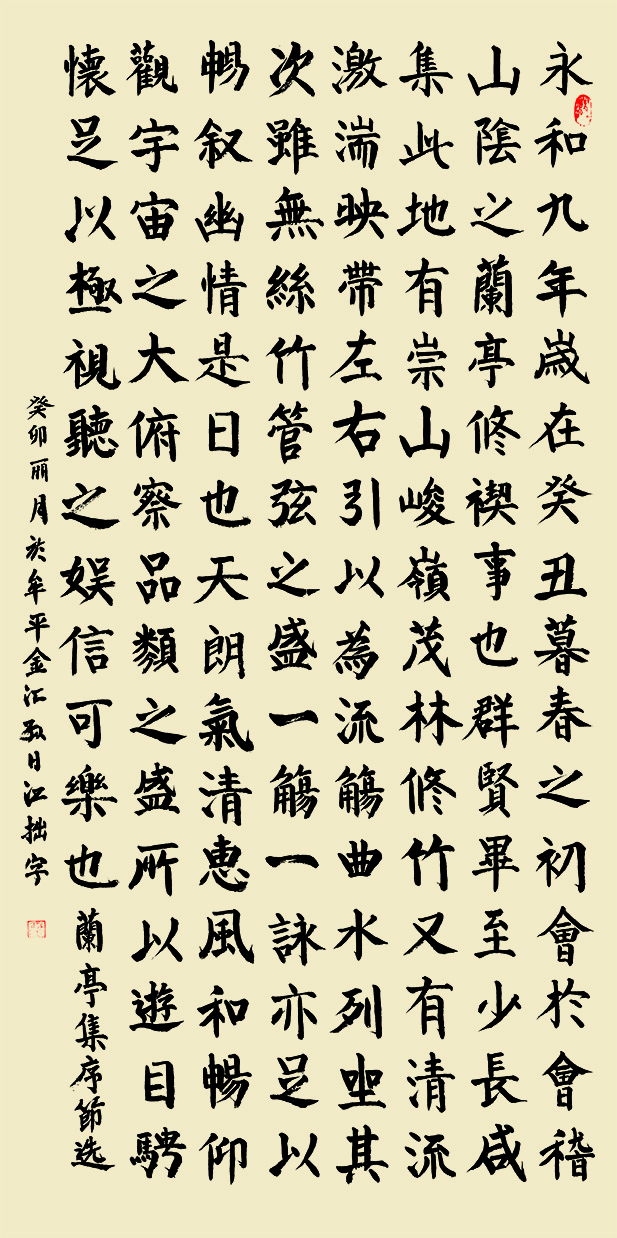 永和九年歲在癸丑暮春之初會於會稽
山陰之蘭亭修禊事也群賢畢至少長咸
集此地有崇山峻嶺茂林修竹又有清流
激湍映帶左右引以為流觴曲水列坐其
次雖無絲竹管弦之盛一觴一詠亦足以
暢叙幽情是日也天朗氣清惠風和暢仰
觀宇宙之大俯察品類之盛所以遊目騁
懷足以極視聽之娱信可樂也 蘭亭集序節选
癸卯丽月於牟平金汇 日江拙字